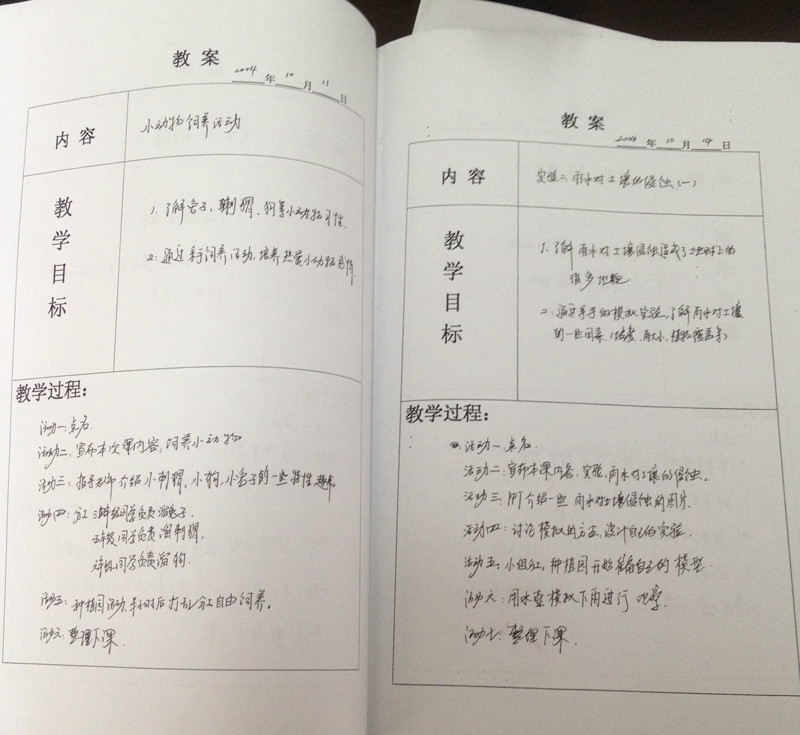 教案
2014年10月11日
内容
小动物饲养活动
教学目标
1、了解兔子、刺猬、狗等小动物习性。
2、通过亲手饲养活动,培养热爱小动物感情。
教学过程:
活动一:点名.
活动二:宣布本次课内容,饲养小动物
活动三:指导老师介绍小刺猬,小狗,小兔子的一些特性
活动四:分工 三年级同学负责 兔子.
五年级同学负责 刺猬,
六年级同学负责 狗.
活动五:种植园活动,半小时后打乱分工自由饲养。
活动六:整理下课.
教案
2014年10月14日
内容
实验二 雨水对土壤的侵蚀(一)
教学目标
1、了解雨水对土壤侵蚀造成了土地上的
很多地貌
2、通过亲手的模拟实验,了解雨水对土壤
的一些因素(坡度、雨大小、植物覆盖等)
教学过程:
活动一:点名.
活动二:宣布本课内容,实验,雨水对土壤的侵蚀。
活动三:介绍一些雨水对土壤侵蚀的图片.
活动四:讨论模拟的方法,设计自己的实验.
活动五:小组分工,种植园开始准备自己的模型.
活动六:用水壶模拟下雨进行观察.
活动七:整理下课.